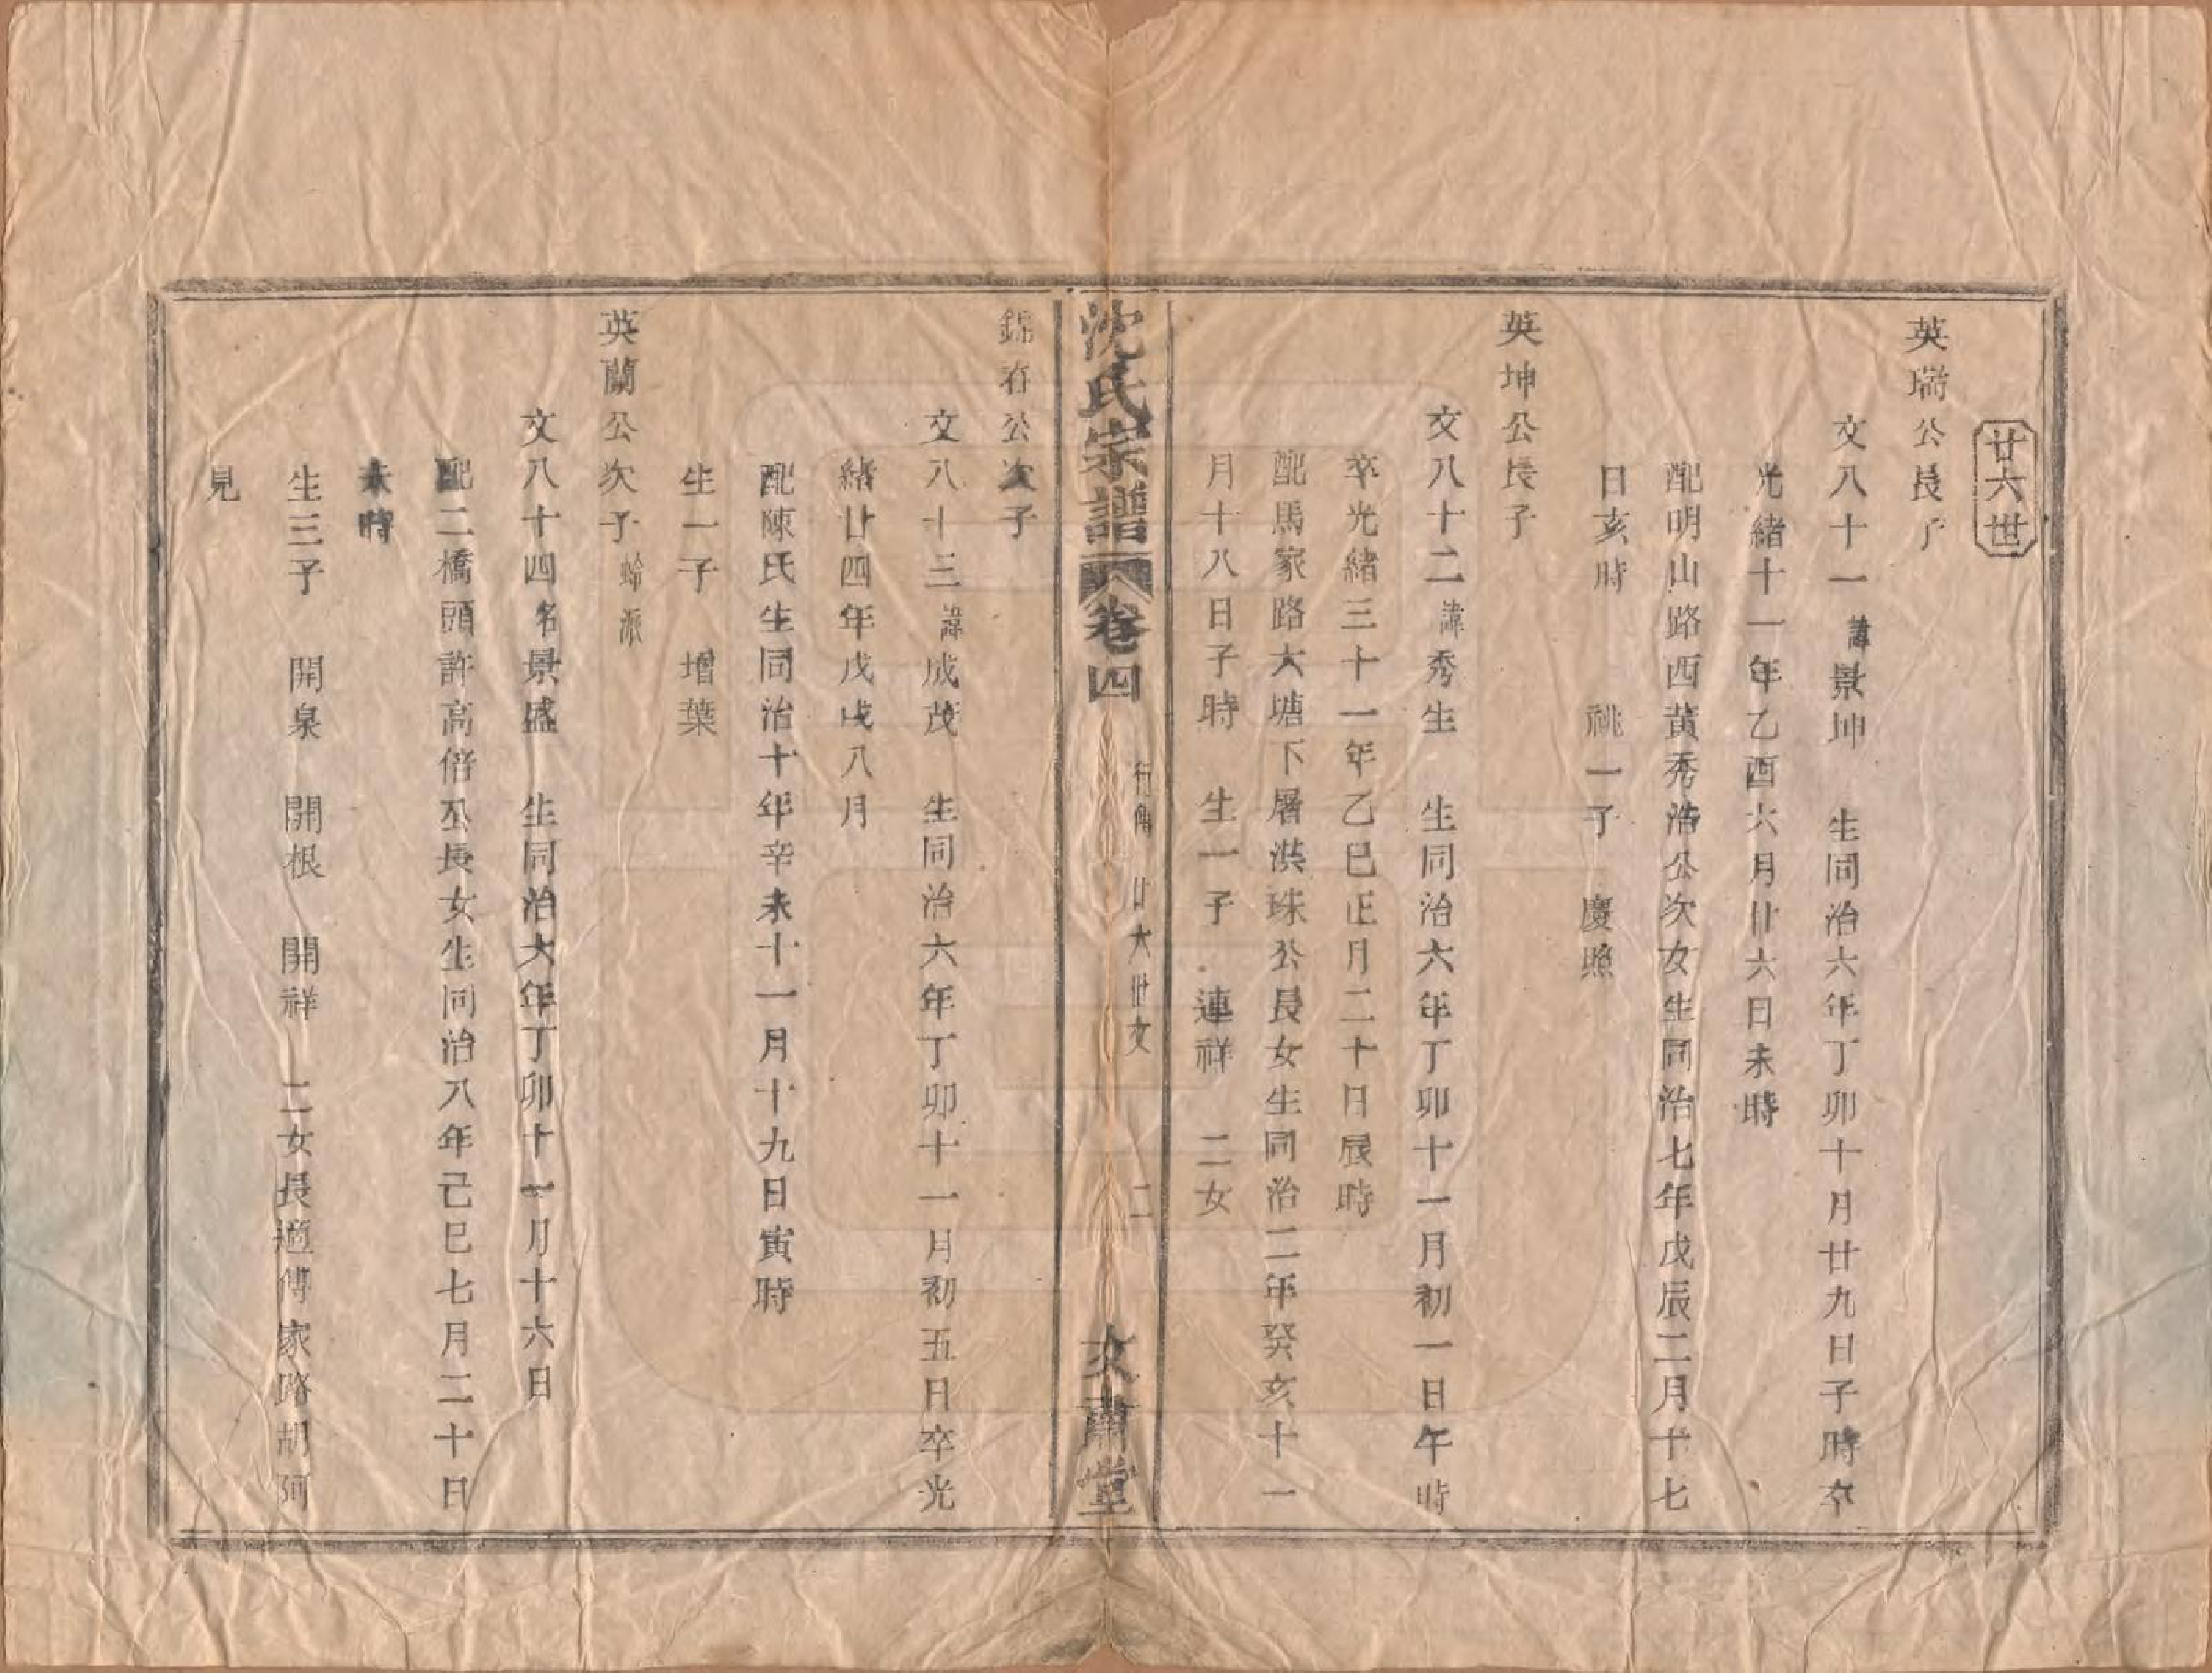 廿六世
英瑞公長子
文八十一諱景坤　生同治六年丁卯十月廿九日子時卒
光緒十一年乙酉六月廿六日未時
配明山路西黃秀浩公次女生同治七年戊辰二月十七
日亥時　　祧一子　慶照
英坤公長子
文八十二諱秀生　生同治六年丁卯十一月初一日午時
卒光緒三十一年乙巳正月二十日辰時
配馬家路大塘下屠洪珠公長女生同治二年癸亥十一
月十八日子時　生一子　連祥　二女
沈氏宗譜
卷四
行傳　廿六世文
二
文肅堂
錦存公次子
文八十三諱成茂　生同治六年丁卯十一月初五日卒光
緒廿四年戊戌八月
配陳氏生同治十年辛未十一月十九日寅時
生一子　增葉
英蘭公次子　派
文八十四名景盛　生同治六年丁卯十一月十六日
配二橋頭許高倍公長女生同治八年己巳七月二十日
未時
生三子　開泉　開根　開祥　二女長適傅家路胡阿
見